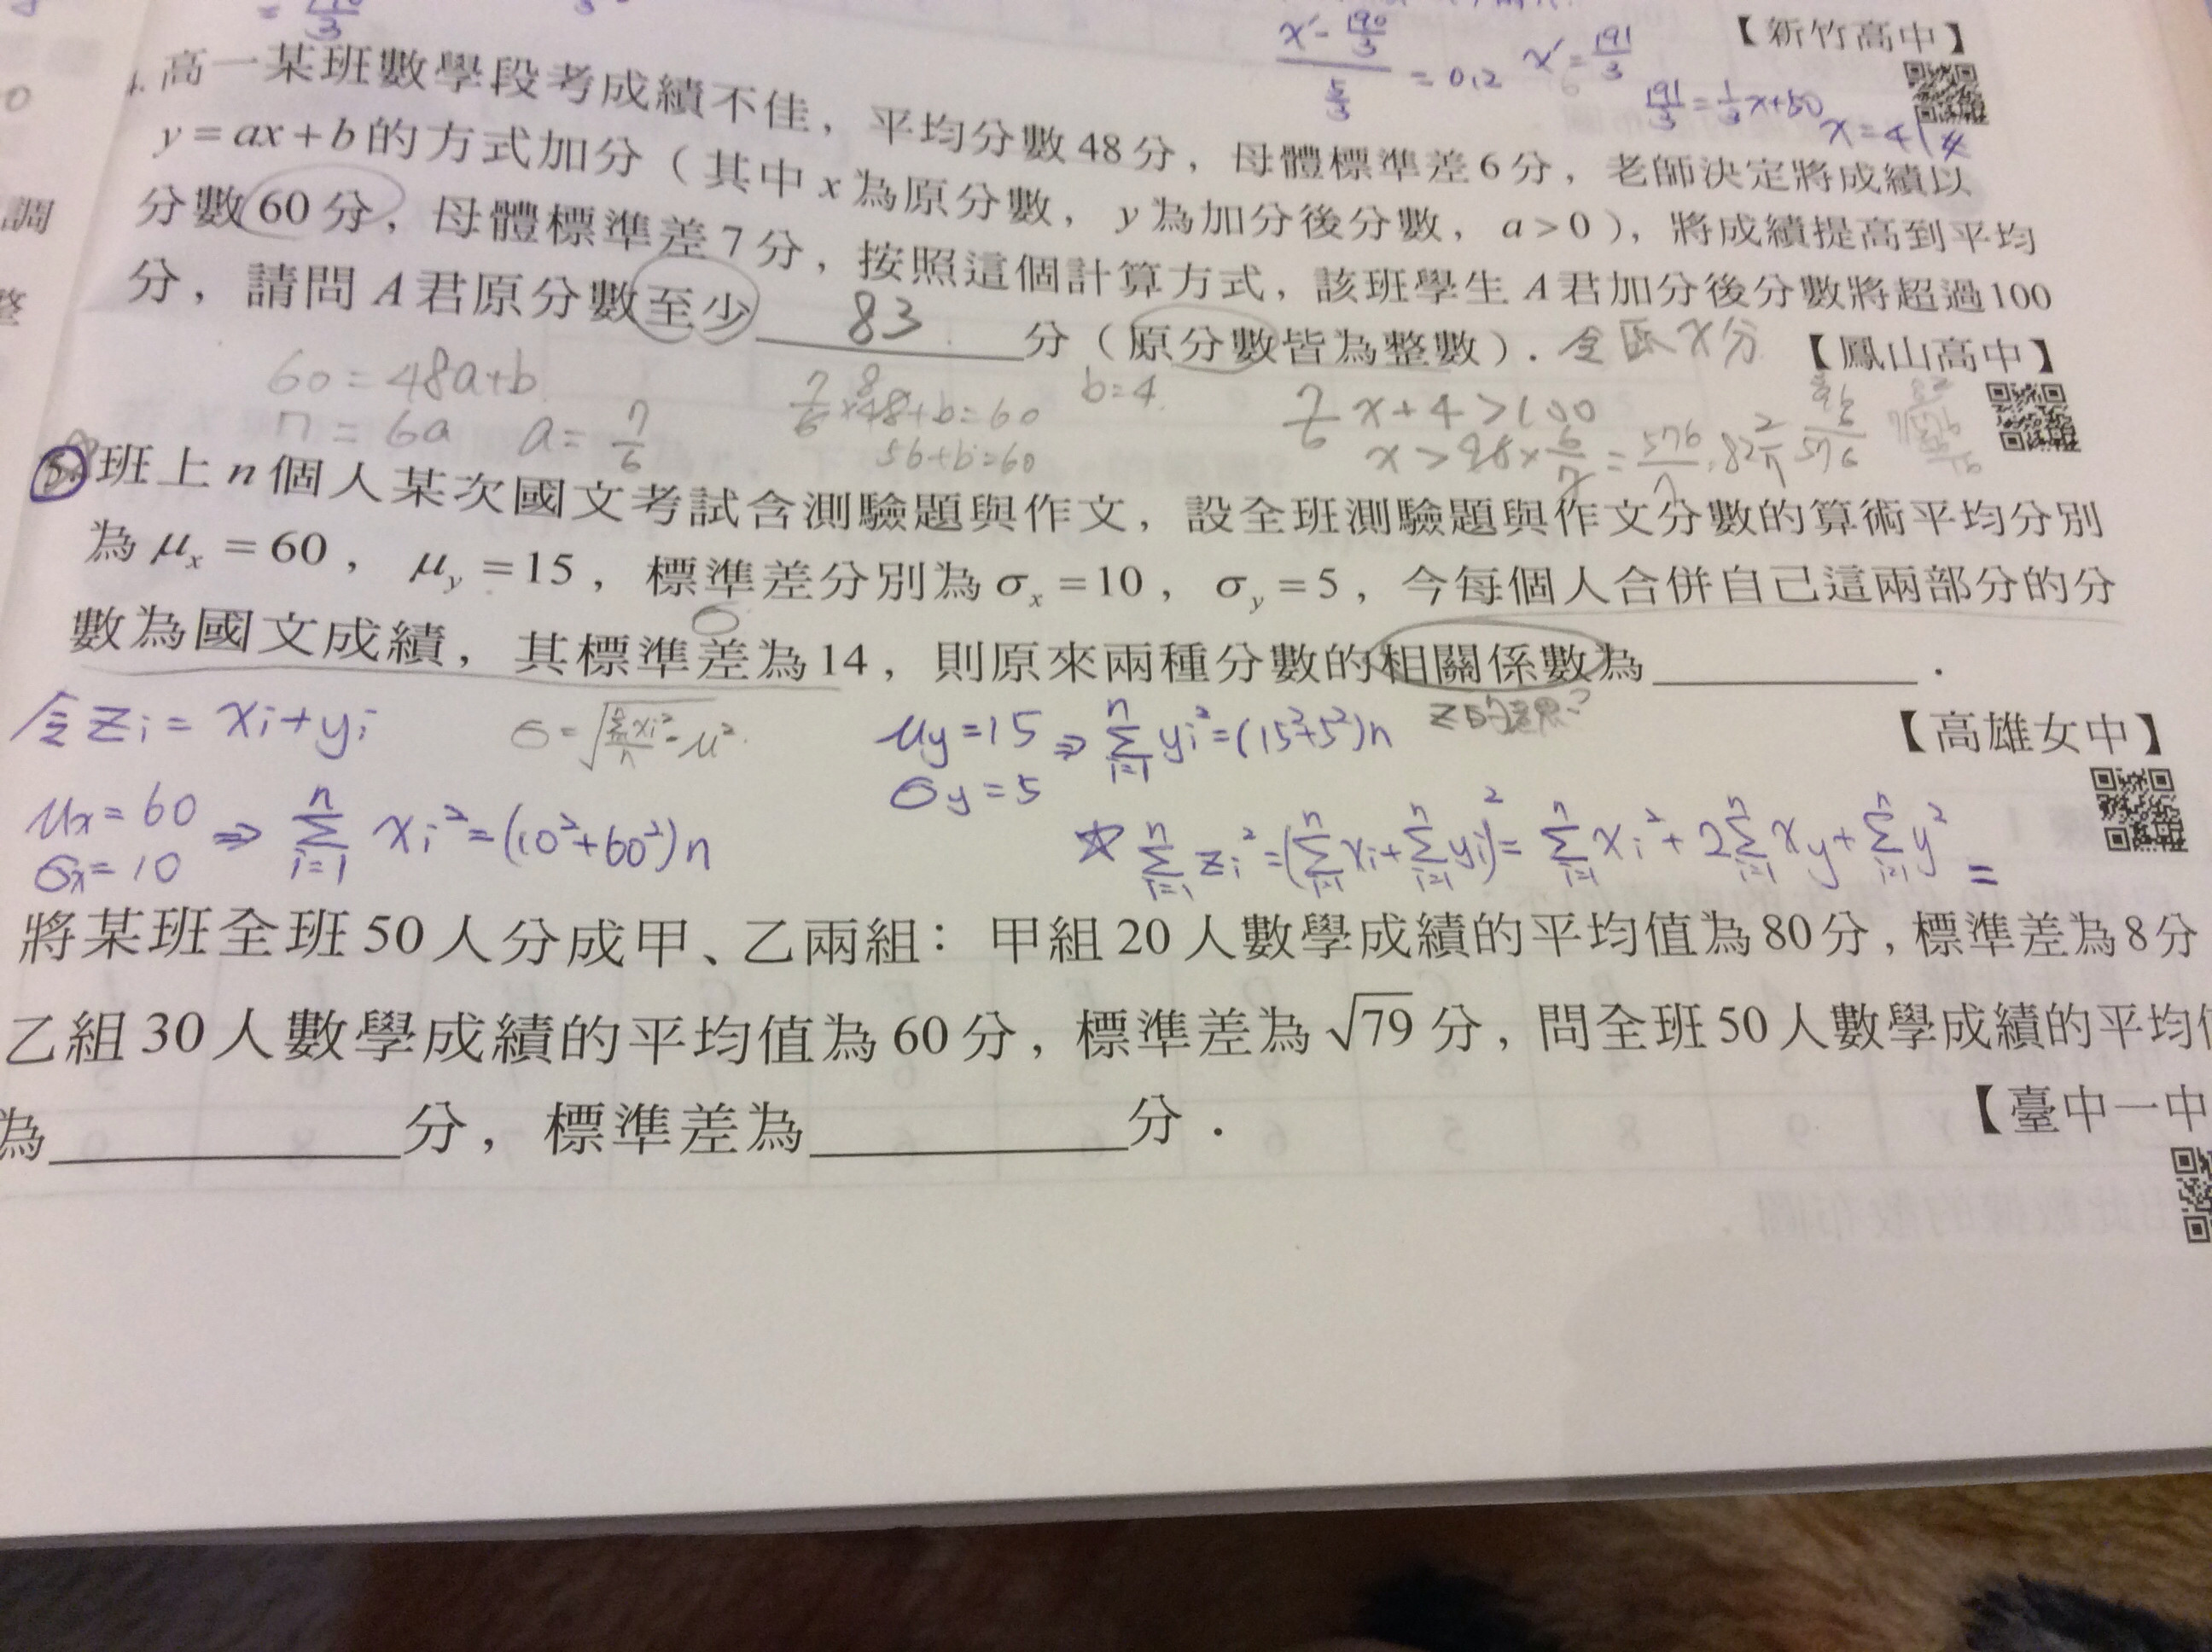 【新竹高中】
x' - 190/3
5/3
= 0.2 x' = 191/3
191/3 = 1/3 x + 50
x = 41
高一某班數學段考成績不佳，平均分數48分，母體標準差6分，老師決定將成績以
y = ax + b 的方式加分（其中 x 為原分數，y 為加分後分數，a > 0），將成績提高到平均
分數60分，母體標準差7分，按照這個計算方式，該班學生 A 君加分後分數將超過100
分，請問 A 君原分數至少 83 分（原分數皆為整數）．
【鳳山高中】
60 = 48a + b
7 = 6a a = 7/6
7/6 × 48 + b = 60
56 + b = 60
b = 4
7/6 x + 4 > 100
x > 96 × 6/7 = 576/7
5. 班上 n 個人某次國文考試含測驗題與作文，設全班測驗題與作文分數的算術平均分別
為 μx = 60，μy = 15，標準差分別為 σx = 10，σy = 5，今每個人合併自己這兩部分的分
數為國文成績，其標準差為14，則原來兩種分數的相關係數為
．
【高雄女中】
令 zi = xi + yi
μx = 60
σx = 10
⇒ Σ(i=1→n) xi² = (10² + 60²)n
μy = 15 ⇒ Σ(i=1→n) yi² = (15² + 5²)n
σy = 5
☆ Σ(i=1→n) zi² = (Σ(i=1→n) xi + Σ(i=1→n) yi)² = Σ(i=1→n) xi² + 2Σ(i=1→n) xy + Σ(i=1→n) y² =
將某班全班50人分成甲、乙兩組：甲組20人數學成績的平均值為80分，標準差為8分
乙組30人數學成績的平均值為60分，標準差為√79分，問全班50人數學成績的平均
為
分，標準差為
分．
【臺中一中